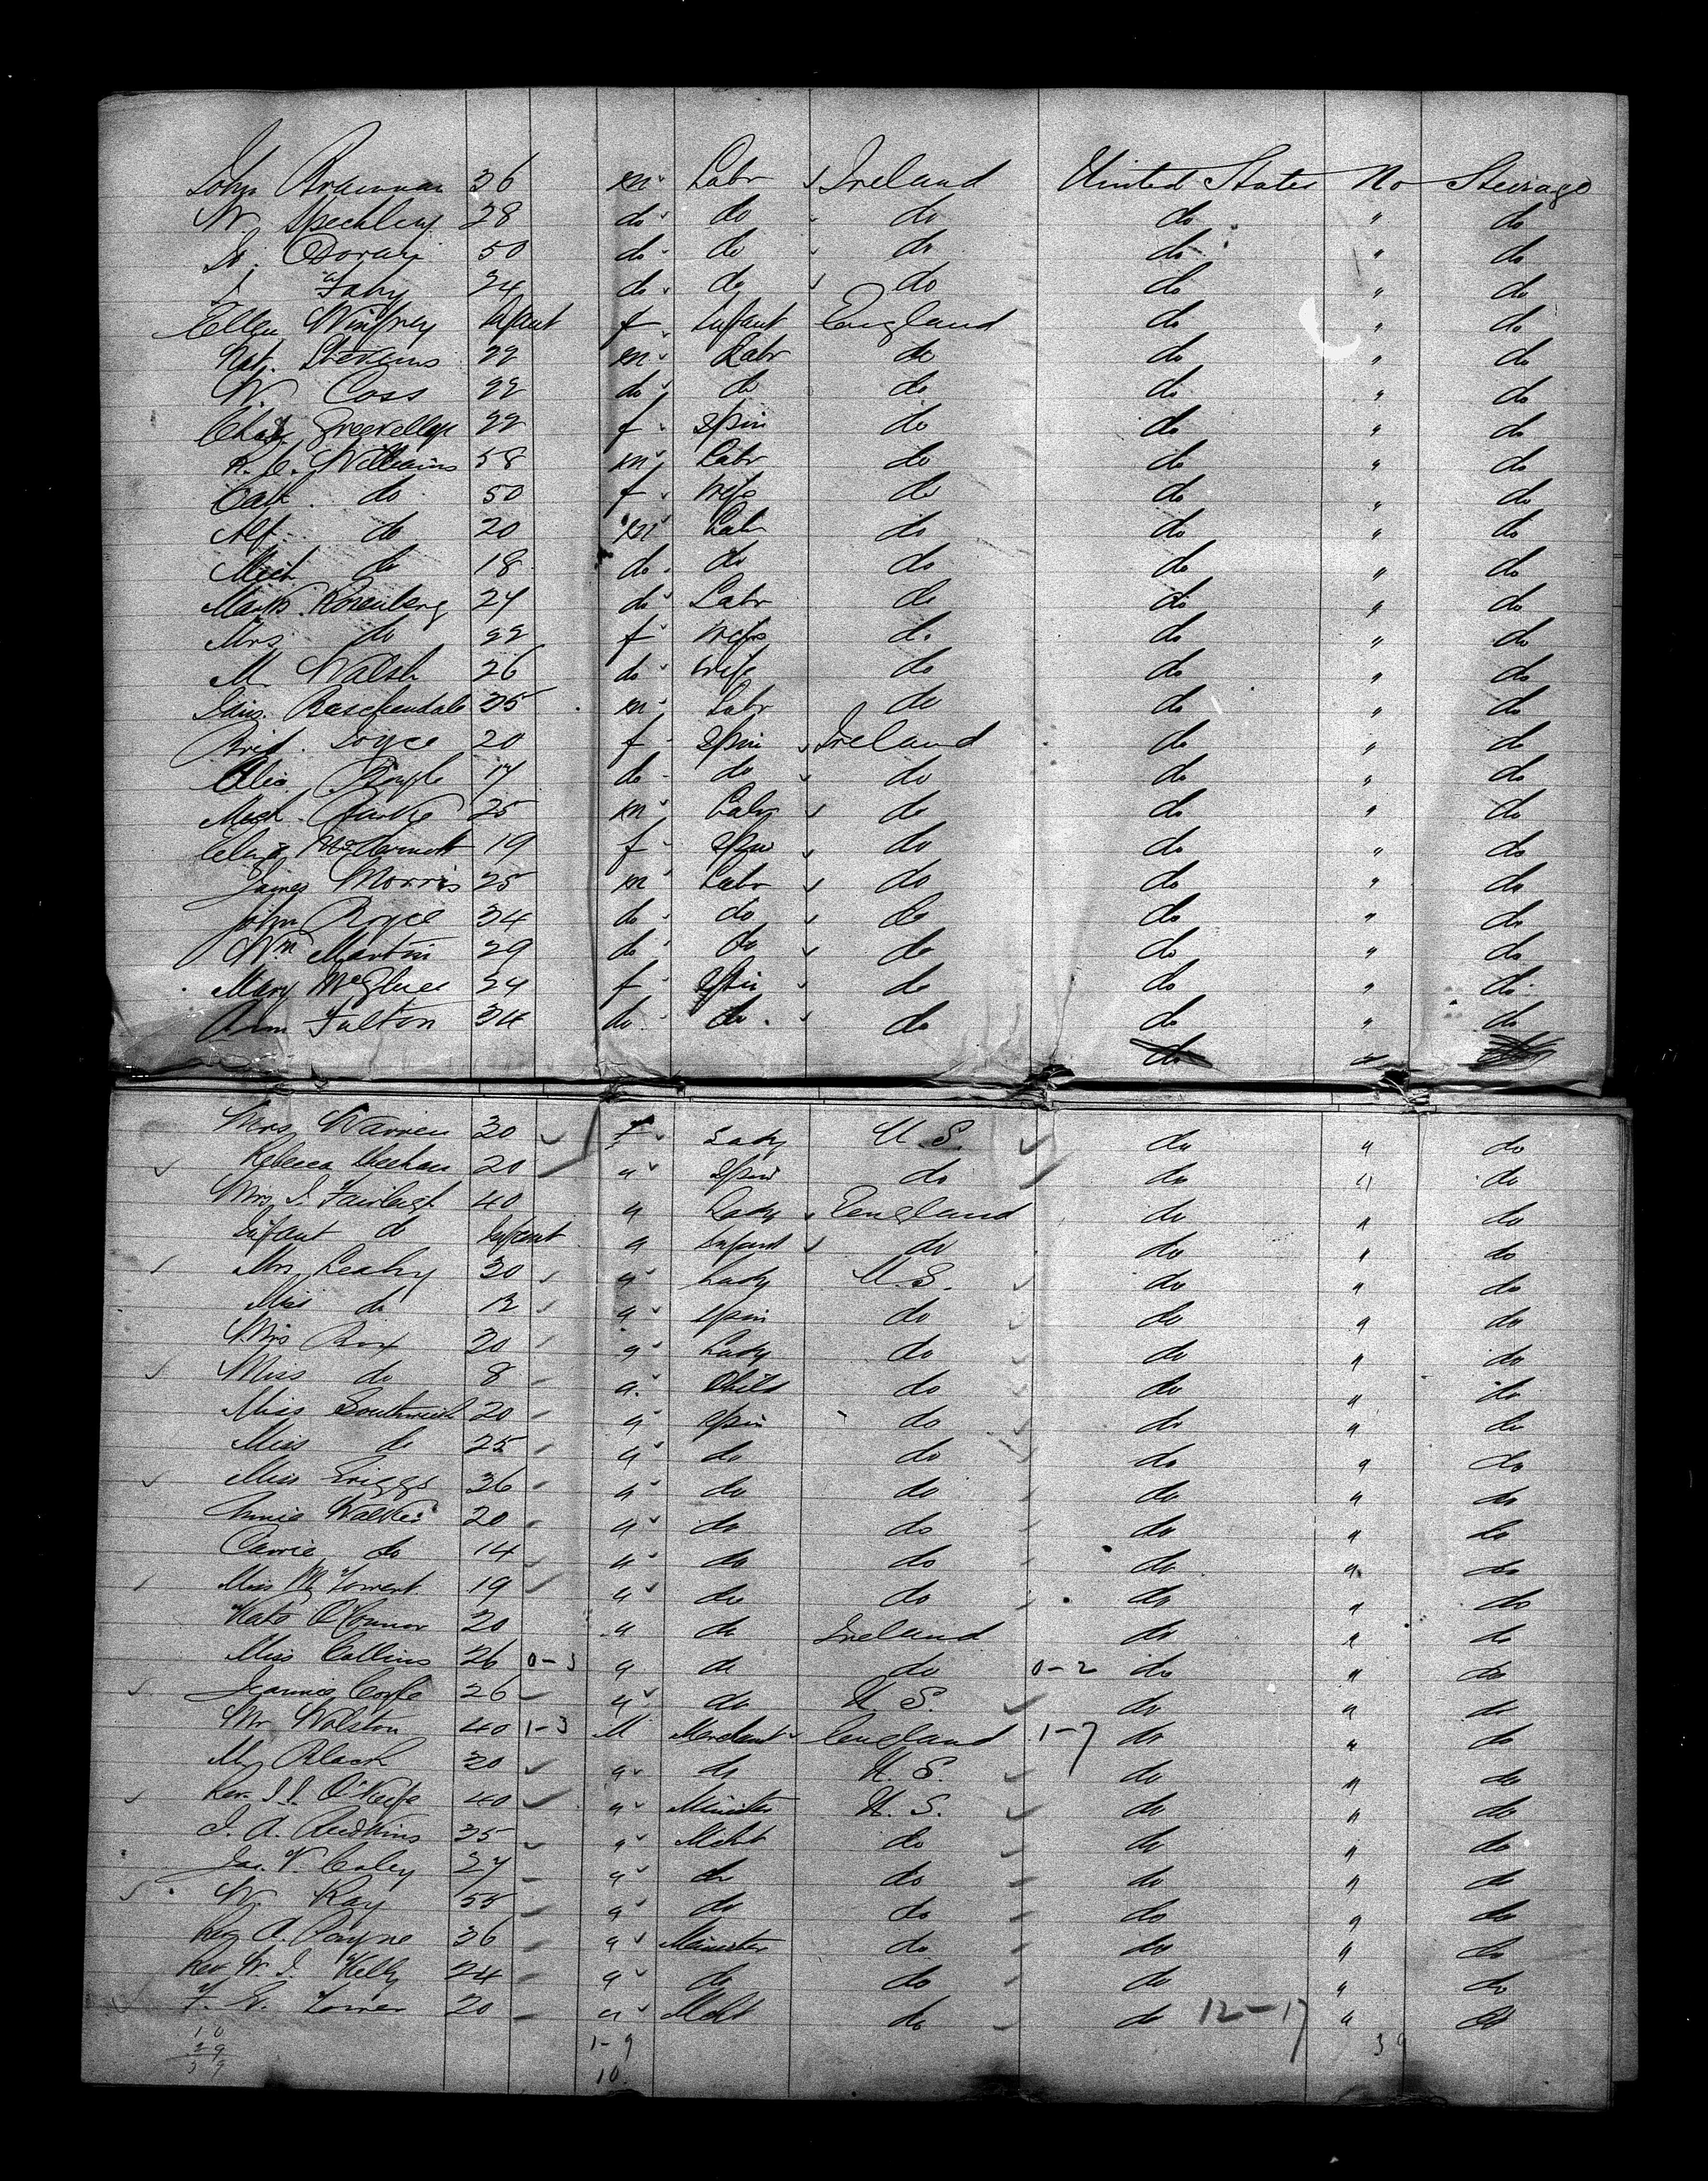 John Brannan 36 m Labr Ireland United States No Steerage
W. Speechley 28 do do do do " do
Dr. Doran 50 do do do do " do
J Fahy 24 do do do do " do
Ellen Winfrey Infant f Infant England do " do
Nat. Stevens 22 m Labr do do " do
W. Coss 22 do do do do " do
22 f Spin do do " do
R. C. Williams 58 m Labr do do " do
Cath. do 50 f wife do do " do
Alf. do 20 m Labr do do " do
Mich. do 18 do do do do " do
Marks Rosenberg 24 do Labr do do " do
Mrs do 22 f wife do do " do
M. Walsh 26 do wife do do " do
35 m Labr do do " do
Brid. Joyce 20 f Spin Ireland do " do
Boyle 17 do do do do " do
Mich. Burke 25 m Labr do do " do
McDermott 19 f Spin do do " do
James Morris 25 m Labr do do " do
John Royce 34 do do do do " do
Wm Martin 29 do do do do " do
Mary McGlue 24 f Spin do do " do
Ann Fulton 34 do do do do " do
do " do
Mrs Warren 30 F Lady U.S. do " do
Rebecca Sheehan 20 " Spin do do " do
Mrs J. Fairleigh 40 " Lady England do " do
Infant do Infant " Infant do do " do
Mrs Leahy 30 " Lady U.S. do " do
Miss do 12 " Spin do do " do
Mrs Box 30 " Lady do do " do
Miss do 8 " Child do do " do
Miss Southwick 20 " Spin do do " do
Miss do 25 " do do do " do
Miss Griggs 36 " do do do " do
Annie Walker 20 " do do do " do
Carrie do 14 " do do do " do
Miss M. Torrent 19 " do do do " do
Kate O'Connor 20 " do Ireland do " do
Miss Collins 26 0-3 " do do 0-2 do " do
Jeannie Coyle 26 " do U.S. do " do
Mr Walston 40 1-3 M Merchant England 1-7 do " do
Mr Black 30 " do U.S. do " do
Rev. J.J. O'Keefe 40 " Minister U.S. do " do
J. A. Audkins 35 " Mcht do do " do
Jas. V. Caley 27 " do do do " do
W. Kay 55 " do do do " do
Rev A. Payne 36 " Minister do do " do
Rev W. J. Kelly 24 " do do do " do
F. E. Tower 20 " Mcht do do 12-17 " do
10
29
39
1-9
10
39